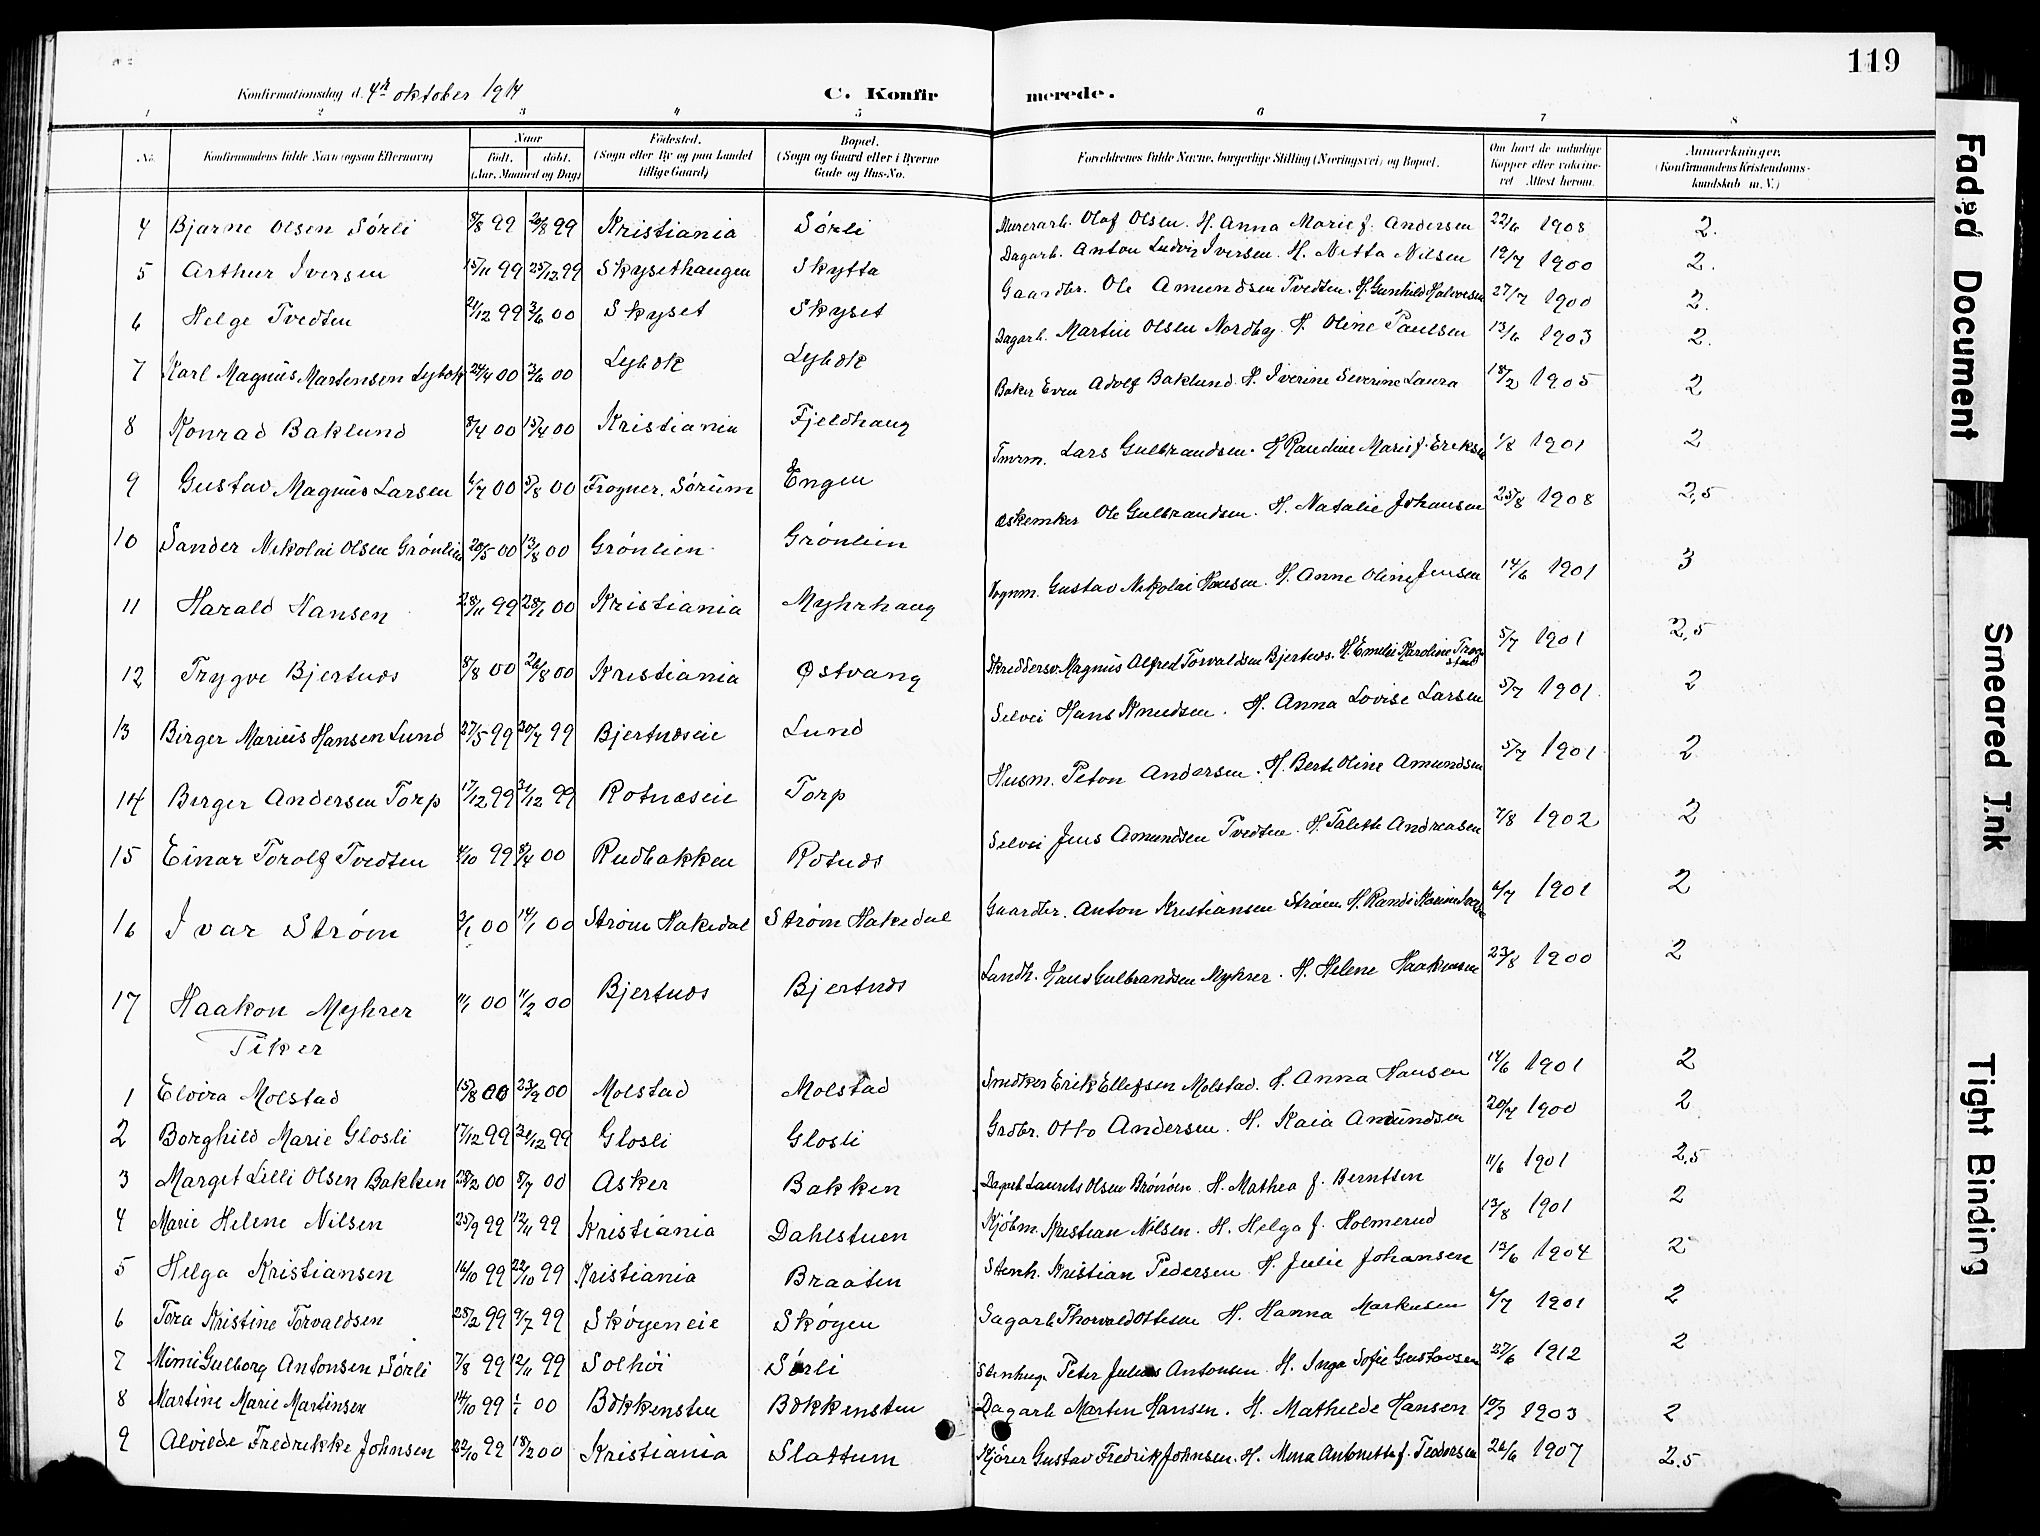 119
Konfirmationsdag d. 4de oktober 1914 C. Konfirmerede.
1 2 3 4 5 6 7 8
No. Konfirmandens fulde Navn (ogsaa Efternavn) Naar født. døbt. (Aar, Maaned og Dag) Fødested. (Sogn eller By og paa Landet tillige Gaard) Bopæl. (Sogn og Gaard eller i Byerne Gade og Hus-No. Forældrenes fulde Navne, borgerlige Stilling (Næringsvei) og Bopæl. Om havt de naturlige Kopper eller vaccineret Attest herom. Anmerkninger. (Konfirmandens Kristendomskundskab m. V.)
4 Bjarne Olsen Sørli 8/8 99 20/8 99 Kristiania Sørli Murerarb. Olaf Olsen. H. Anna Marie f. Andersen 22/6 1908 2.
5 Arthur Iversen 15/11 99 25/12 99 Skysethaugen Skytta Dagarb. Anton Ludvig Iversen. H. Netta Nilsen 12/7 1900 2.
6 Helge Tvedten 21/12 99 3/6 00 Skyset Skyset Gaardbr. Ole Amundsen Tvedten. H. Gunhild Halvorsen 27/7 1900 2.
7 Karl Magnus Martensen Lybæk 24/4 00 3/6 00 Lybæk Lybæk Dagarb. Martin Olsen Nordby. H. Oline Paulsen 13/6 1903 2.
8 Konrad Baklund 8/4 00 15/4 00 Kristiania Fjeldhaug Baker Even Adolf Baklund. H. Iverine Severine Laura 18/2 1905 2
9 Gustav Magnus Larsen 6/7 00 5/8 00 Frogner. Sørum Engen Tmrm. Lars Gulbrandsen. H. Randine Marie f. Eriksen 1/8 1901 2
10 Sander Nikolai Olsen Grønlien 20/5 00 13/8 00 Grønlien Grønlien Æskemker Ole Gulbrandsen. H. Natalie Johansen 25/8 1908 2,5
11 Harald Hansen 28/11 99 28/1 00 Kristiania Myhrhaug Vognm. Gustav Nikolai Hansen. H. Anne Oline Jensen 14/6 1901 3
12 Trygve Bjertnæs 8/8 00 26/8 00 Kristiania Østvang Skreddersv. Magnus Alfred Torvaldsen Bjertnæs. H. Emilie Karoline Trogstad 5/7 1901 2,5
13 Birger Marius Hansen Lund 27/5 99 30/7 99 Bjertnæseie Lund Selvei Hans Knudsen. H. Anna Lovise Larsen 5/7 1901 2
14 Birger Andersen Torp 17/12 99 31/12 99 Rotnæseie Torp Husm. Peton Andersen. H. Berte Oline Amundsen 5/7 1901 2
15 Einar Torolf Tvedten 4/10 99 8/4 00 Rudbakken Rotnæs Selvei Jens Amundsen Tvedten. H. Talette Andreasen 7/8 1902 2
16 Ivar Strøm 3/1 00 14/1 00 Strøm Hakedal Strøm Hakedal Gaardbr. Anton Kristiansen Strøm. H. Randi Karine 6/7 1901 2
17 Haakon Myhrer 11/1 00 11/2 00 Bjertnæs Bjertnæs Landh. Hans Gulbrandsen Myhrer. H. Helene Haakensen 23/8 1900 2
Piker
1 Elvira Molstad 15/8 00 23/9 00 Molstad Molstad Smedker Erik Ellefsen Molstad. H. Anna Hansen 14/6 1901 2
2 Borghild Marie Glosli 17/12 99 31/12 99 Glosli Glosli Grdbr. Otto Andersen. H. Kaia Amundsen 20/7 1900 2
3 Margit Lilli Olsen Bakken 28/2 00 8/7 00 Asker Bakken Dagarb Laurits Olsen Brønøen. H. Mathea f. Berntsen 11/6 1901 2.5
4 Marie Helene Nilsen 25/9 99 12/11 99 Kristiania Dahlstuen Kjøbm. Kristian Nilsen. H. Helga f. Holmerud 13/8 1901 2
5 Helga Kristiansen 16/10 99 22/10 99 Kristiania Braaten Stenh. Kristian Pedersen. H. Julie Johansen 13/6 1904 2
6 Tora Kristine Torvaldsen 25/2 99 9/7 99 Skøyeneie Skøyen Sagarb Thorvald Ottesen H. Hanna Markusen 4/7 1901 2
7 Mimi Gulborg Antonsen Sørli 7/8 99 12/11 99 Solhøi Sørli Stenhug. Peter Julius Antonsen. H. Inga Sofie Gustavsen 27/6 1912 2
8 Martine Marie Martinsen 14/10 99 1/1 00 Bækkensten Bækkensten Dagarb Marten Hansen. H. Mathilde Hansen 10/7 1903 2
9 Alvilde Fredrikke Johnsen 22/10 99 18/2 00 Kristiania Slattum Kjører Gustav Fredrik Johnsen. H. Mina Antonette f. Pedersen 26/6 1907 2.5
Faded Document
Smeared Ink
Tight Binding